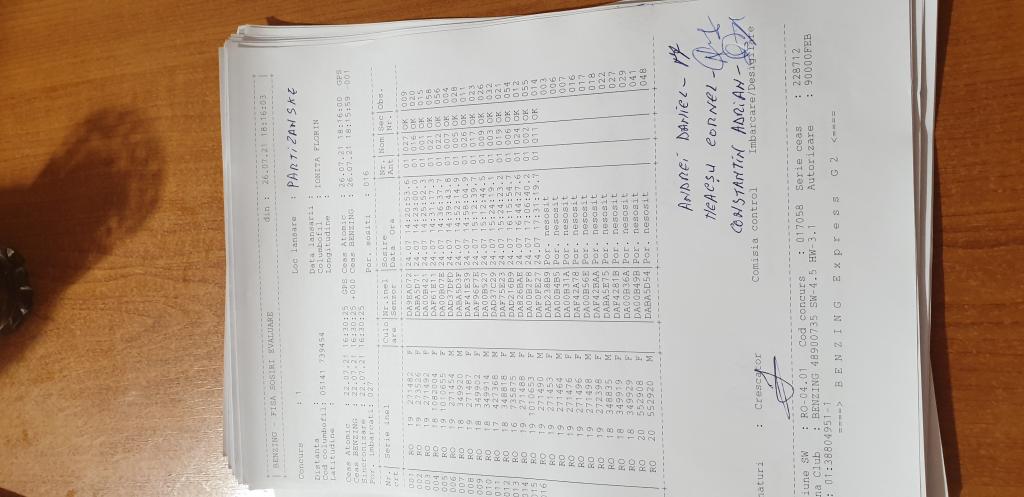 BENZING - FISA SOSIRI EVALUARE din 26.07.21 18:16:03
Concurs : 1 Loc lansare : PARTIZANSKE
Distanta : Data lansarii :
Cod columbofil: 05141 739454 Columbofil : IONITA FLORIN
Latitudine : Longitudine :
Ceas Atomic : 22.07.21 16:30:25 GPS Ceas Atomic : 26.07.21 18:16:00 GPS
Ceas BENZING : 22.07.21 16:30:25 +000 Ceas BENZING : 26.07.21 18:15:59 -001
Sincronizare : 22.07.21 16:30:25
Por. imbarcati: 027 Por. sositi : 016
Nr. Serie inel Culo Nr.inel Sosire Nr. Nom Sec Obs.
crt are Senzor Data Ora Ant Nr.
001 RO 19 271482 F DA9BA072 24.07 14:22:33.6 01 027 OK 009
002 RO 19 273526 F DABA5D72 24.07 14:23:00.0 01 016 OK 020
003 RO 19 271492 F DA00B421 24.07 14:28:02.3 01 001 OK 015
004 RO 18 1082004 F DAF61E11 24.07 14:31:17.3 01 021 OK 058
005 RO 19 1010655 F DA00B07E 24.07 14:36:37.7 01 022 OK 056
006 RO 19 271454 M DAD375FD 24.07 14:50:43.8 01 007 OK 004
007 RO 18 349920 M DABA5D3F 24.07 14:52:14.9 01 005 OK 028
008 RO 19 271487 F DAF41E39 24.07 14:58:04.9 01 026 OK 011
009 RO 18 349902 F DAF96F7E 24.07 15:12:39.7 01 017 OK 023
010 RO 18 349914 M DA00B527 24.07 15:12:44.5 01 009 OK 026
011 RO 17 423368 M DAD37C29 24.07 15:24:19.1 01 003 OK 032
012 RO 18 348818 F DAF75E23 24.07 15:24:23.2 01 019 OK 021
013 RO 16 735875 M DAD216B9 24.07 16:15:54.7 01 006 OK 054
014 RO 19 271488 F DAB25BAE 24.07 16:44:27.6 01 024 OK 012
015 RO 19 1010653 F DA00B2F8 24.07 17:06:40.2 01 002 OK 055
016 RO 19 271490 F DAF0FE27 24.07 17:31:19.7 01 011 OK 014
RO 19 271453 F DAD238B9 Por. nesosit 003
RO 19 271464 M DA00B4B5 Por. nesosit 006
RO 19 271476 F DA00B31A Por. nesosit 007
RO 19 271496 F DAF42A78 Por. nesosit 016
RO 19 271498 M DA00B56E Por. nesosit 017
RO 19 272398 F DAF42BAA Por. nesosit 018
RO 18 348835 M DABA5E75 Por. nesosit 022
RO 18 349919 F DAF4281B Por. nesosit 027
RO 18 349929 F DA00B36A Por. nesosit 029
RO 20 552908 F DA00B49B Por. nesosit 041
RO 20 552920 M DABA5D54 Por. nesosit 048
ANDREI DANIEL -
NEACȘU CORNEL -
CONSTANTIN ADRIAN -
naturi : Crescator Comisia control Imbarcare/Desigilare
iune SW : RO-04.01 Cod concurs : 017058 Serie ceas : 228712
na Club : BENZING 48900735 SW-4.5 HW-3.1 Autorizare : 90000FEB
: 01:38804951-1
====> BENZING Express G2 <====